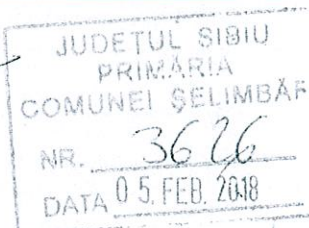 JUDEŢUL SIBIU
PRIMĂRIA
COMUNEI ŞELIMBĂR
NR. 3626
DATA 05. FEB. 2018